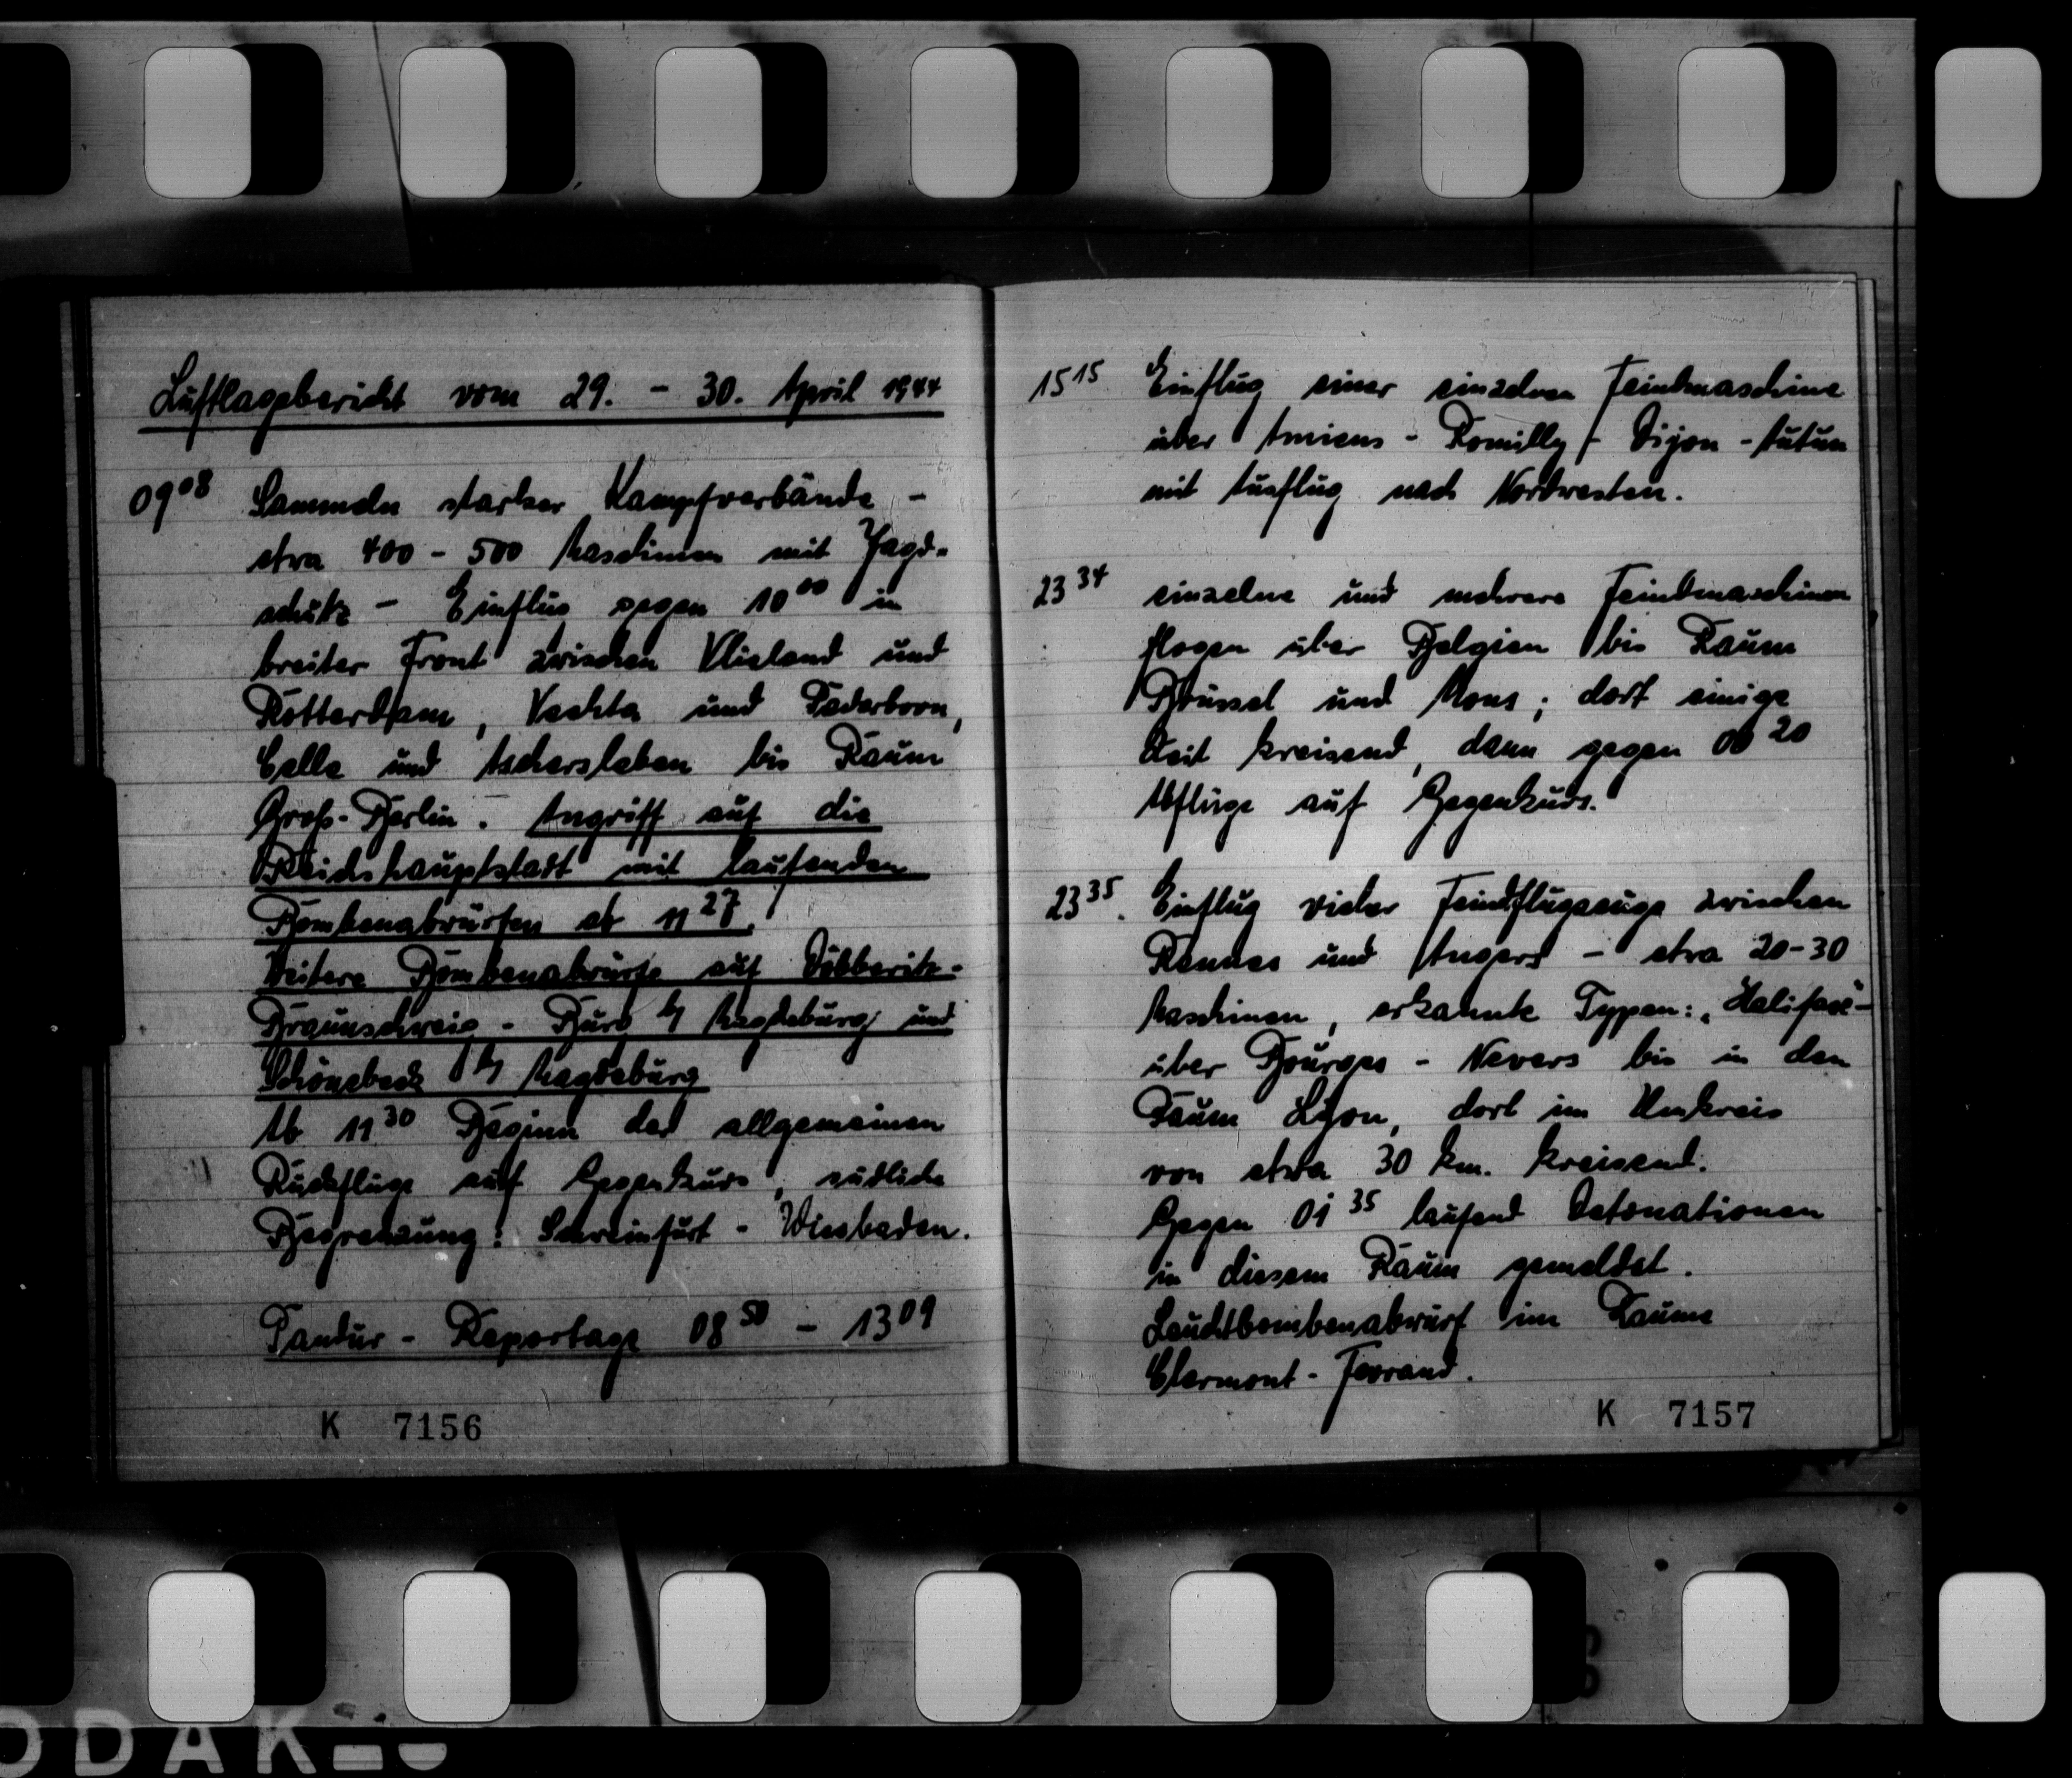 Luftlagebericht vom 29. - 30. April 1944
09 08 Sammeln starker Kampfverbände -
etwa 400 - 500 Maschinen mit Jagd-
schutz - Einflug gegen 10 00 in
breiter Front zwischen Vlieland und
Rotterdam, Vechta und Paderborn,
Celle und Aschersleben bis Raum
Groß-Berlin. Angriff auf die
Reichshauptstadt mit laufenden
Bombenabwürfen ab 11 27.
Weitere Bombenabwürfe auf Döberitz-
Braunschweig - Burg b/ Magdeburg und
Schönebeck b/ Magdeburg
Ab 11 30 Beginn der allgemeinen
Rückflüge auf Gegenkurs, südliche
Begrenzung: Schweinfurt - Wiesbaden.
Pandur - Reportage 08 50 - 13 09
K 7156
15 15 Einflug einer einzelnen Feindmaschine
über Amiens - Romilly - Dijon - Autun
mit Ausflug nach Nordwesten.
23 34 einzelne und mehrere Feindmaschinen
flogen über Belgien bis Raum
Brüssel und Mons; dort einige
Zeit kreisend, dann gegen 00 20
Abflüge auf Gegenkurs.
23 35. Einflug vieler Feindflugzeuge zwischen
Rennes und Angers - etwa 20-30
Maschinen, erkannte Typen: „Halifax“-
über Bourges - Nevers bis in den
Raum Lyon, dort im Umkreis
von etwa 30 km. kreisend.
Gegen 01 35 laufend Detonationen
in diesem Raum gemeldet.
Leuchtbombenabwurf im Raume
Clermont - Ferrand.
K 7157
ODAK